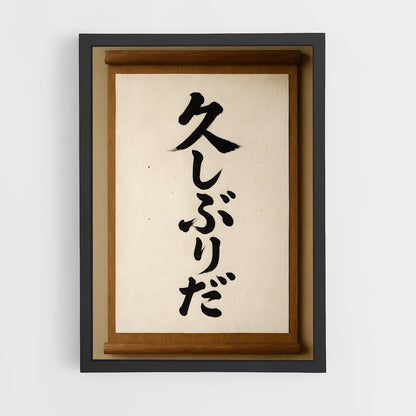 久しぶりだ